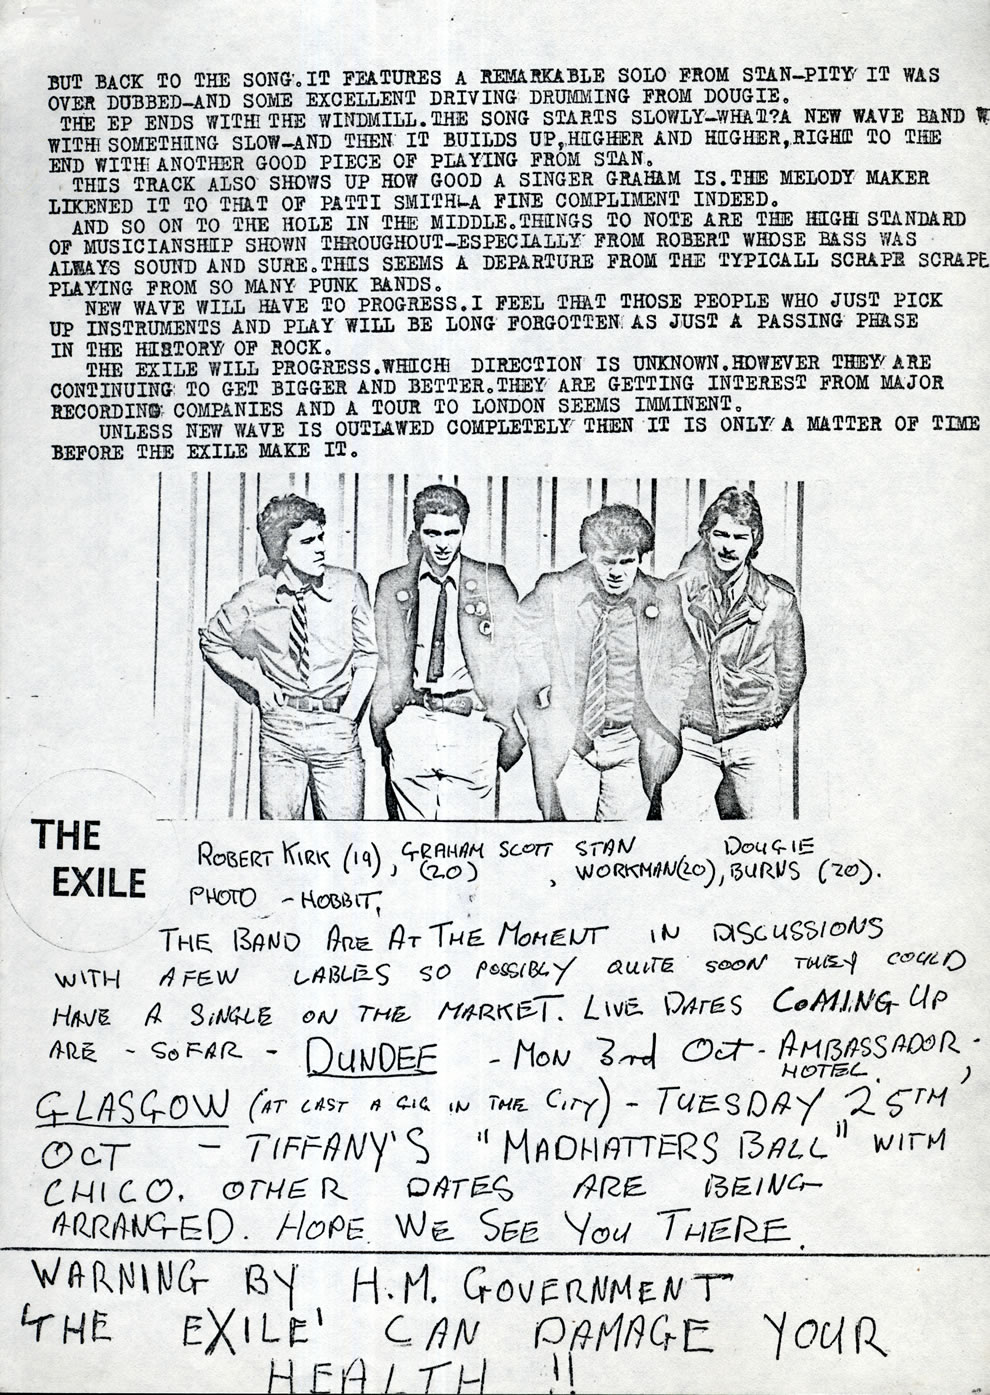 BUT BACK TO THE SONG.IT FEATURES A REMARKABLE SOLO FROM STAN-PITY IT WAS
OVER DUBBED-AND SOME EXCELLENT DRIVING DRUMMING FROM DOUGIE.
THE EP ENDS WITH THE WINDMILL.THE SONG STARTS SLOWLY-WHAT?A NEW WAVE BAND W
WITH SOMETHING SLOW-AND THEN IT BUILDS UP,HIGHER AND HIGHER,RIGHT TO THE
END WITH ANOTHER GOOD PIECE OF PLAYING FROM STAN.
THIS TRACK ALSO SHOWS UP HOW GOOD A SINGER GRAHAM IS.THE MELODY MAKER
LIKENED IT TO THAT OF PATTI SMITH-A FINE COMPLIMENT INDEED.
AND SO ON TO THE HOLE IN THE MIDDLE.THINGS TO NOTE ARE THE HIGH STANDARD
OF MUSICIANSHIP SHOWN THROUGHOUT-ESPECIALLY FROM ROBERT WHOSE BASS WAS
ALWAYS SOUND AND SURE.THIS SEEMS A DEPARTURE FROM THE TYPICALL SCRAPE SCRAPE
PLAYING FROM SO MANY PUNK BANDS.
NEW WAVE WILL HAVE TO PROGRESS.I FEEL THAT THOSE PEOPLE WHO JUST PICK
UP INSTRUMENTS AND PLAY WILL BE LONG FORGOTTEN AS JUST A PASSING PHASE
IN THE HISTORY OF ROCK.
THE EXILE WILL PROGRESS.WHICH DIRECTION IS UNKNOWN.HOWEVER THEY ARE
CONTINUING TO GET BIGGER AND BETTER.THEY ARE GETTING INTEREST FROM MAJOR
RECORDING COMPANIES AND A TOUR TO LONDON SEEMS IMMINENT.
UNLESS NEW WAVE IS OUTLAWED COMPLETELY THEN IT IS ONLY A MATTER OF TIME
BEFORE THE EXILE MAKE IT.
THE
EXILE
ROBERT KIRK (19), GRAHAM SCOTT (20), STAN WORKMAN(20), DOUGIE BURNS (20).
PHOTO - HOBBIT.
THE BAND ARE AT THE MOMENT IN DISCUSSIONS
WITH A FEW LABLES SO POSSIBLY QUITE SOON THEY COULD
HAVE A SINGLE ON THE MARKET. LIVE DATES COMING UP
ARE - SO FAR - DUNDEE - MON 3rd Oct - AMBASSADOR HOTEL,
GLASGOW (AT LAST A GIG IN THE CITY) - TUESDAY 25TH
OCT - TIFFANY'S "MADHATTERS BALL" WITH
CHICO. OTHER DATES ARE BEING
ARRANGED. HOPE WE SEE YOU THERE.
WARNING BY H.M. GOVERNMENT
'THE EXILE' CAN DAMAGE YOUR
HEALTH !!